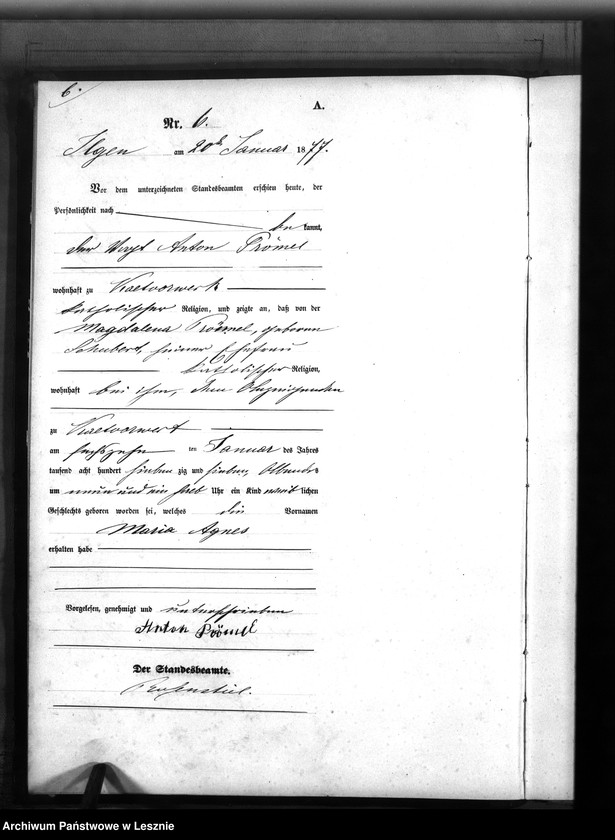 6.
A.
Nr. 6.
Ilgen am 20ten Januar 1877.
Vor dem unterzeichneten Standesbeamten erschien heute, der
Persönlichkeit nach
be kannt,
der Vogt Anton Prömel
wohnhaft zu Kaetvorwerk
katholischer Religion, und zeigte an, daß von der
Magdalena Prömel, geborene
Schubert, seiner Ehefrau
katholischer Religion,
wohnhaft bei ihm, dem Anzeigenden
zu Kaetvorwerk
am sechszehn ten Januar des Jahres
tausend acht hundert sieben zig und sieben, Abends
um neun und ein halb Uhr ein Kind weib lichen
Geschlechts geboren worden sei, welches die Vornamen
Maria Agnes
erhalten habe
Vorgelesen, genehmigt und unterschrieben
Anton Prömel
Der Standesbeamte.
Archiwum Państwowe w Lesznie